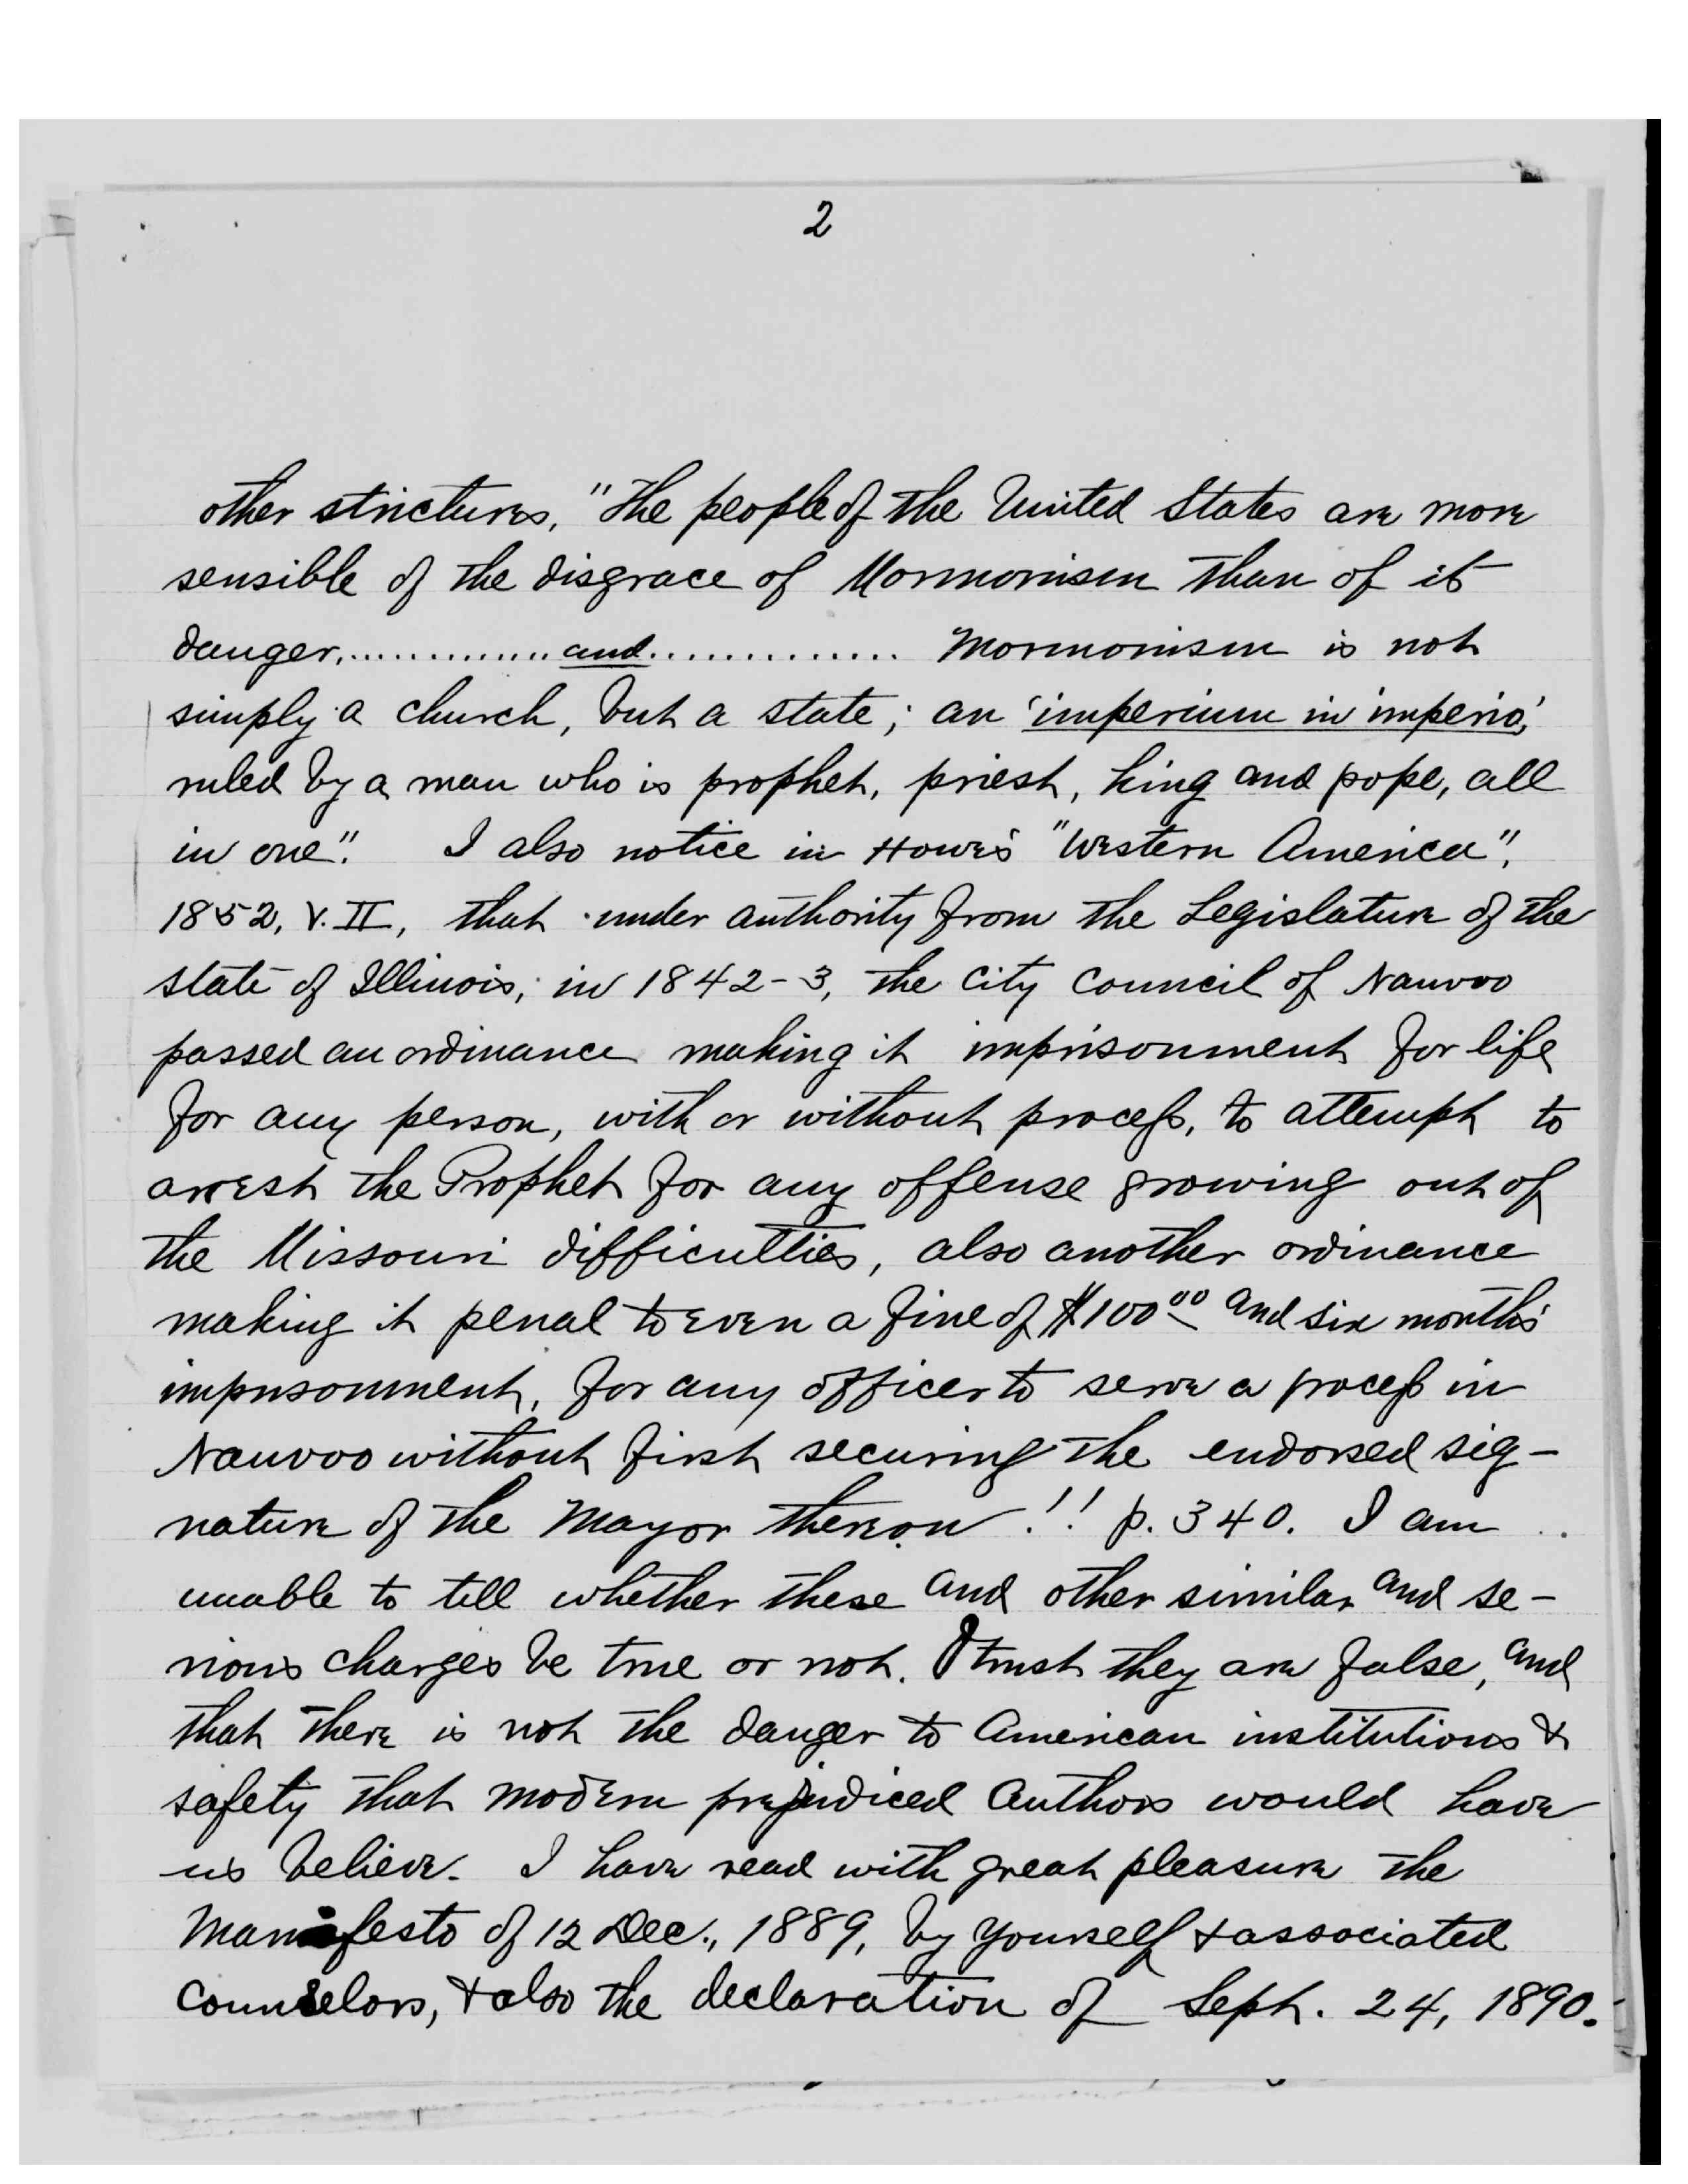 2
other strictures, "The people of the United States are more
sensible of the disgrace of Mormonism than of it
danger,............. and.............. Mormonism is not
simply a church, but a state; an 'imperium in imperio,'
ruled by a man who is prophet, priest, king and pope, all
in one". I also notice in Howe's "Western America",
1852, V. II, that under authority from the Legislature of the
state of Illinois, in 1842-3, the City Council of Nauvoo
passed an ordinance making it imprisonment for life
for any person, with or without process, to attempt to
arrest the Prophet for any offense growing out of
the Missouri difficulties, also another ordinance
making it penal to even a fine of $100.00 and six month's
imprisonment, for any officer to serve a process in
Nauvoo without first securing the endorsed sig-
nature of the Mayor thereon!! p. 340. I am ..
unable to tell whether these and other similar and se-
rious charges be true or not. I trust they are false, and
that there is not the danger to American institutions &
safety that modern prejudiced authors would have
us believe. I have read with great pleasure the
Manifesto of 12 Dec., 1889, by yourself & associated
Counselors, & also the declaration of Sept. 24, 1890.